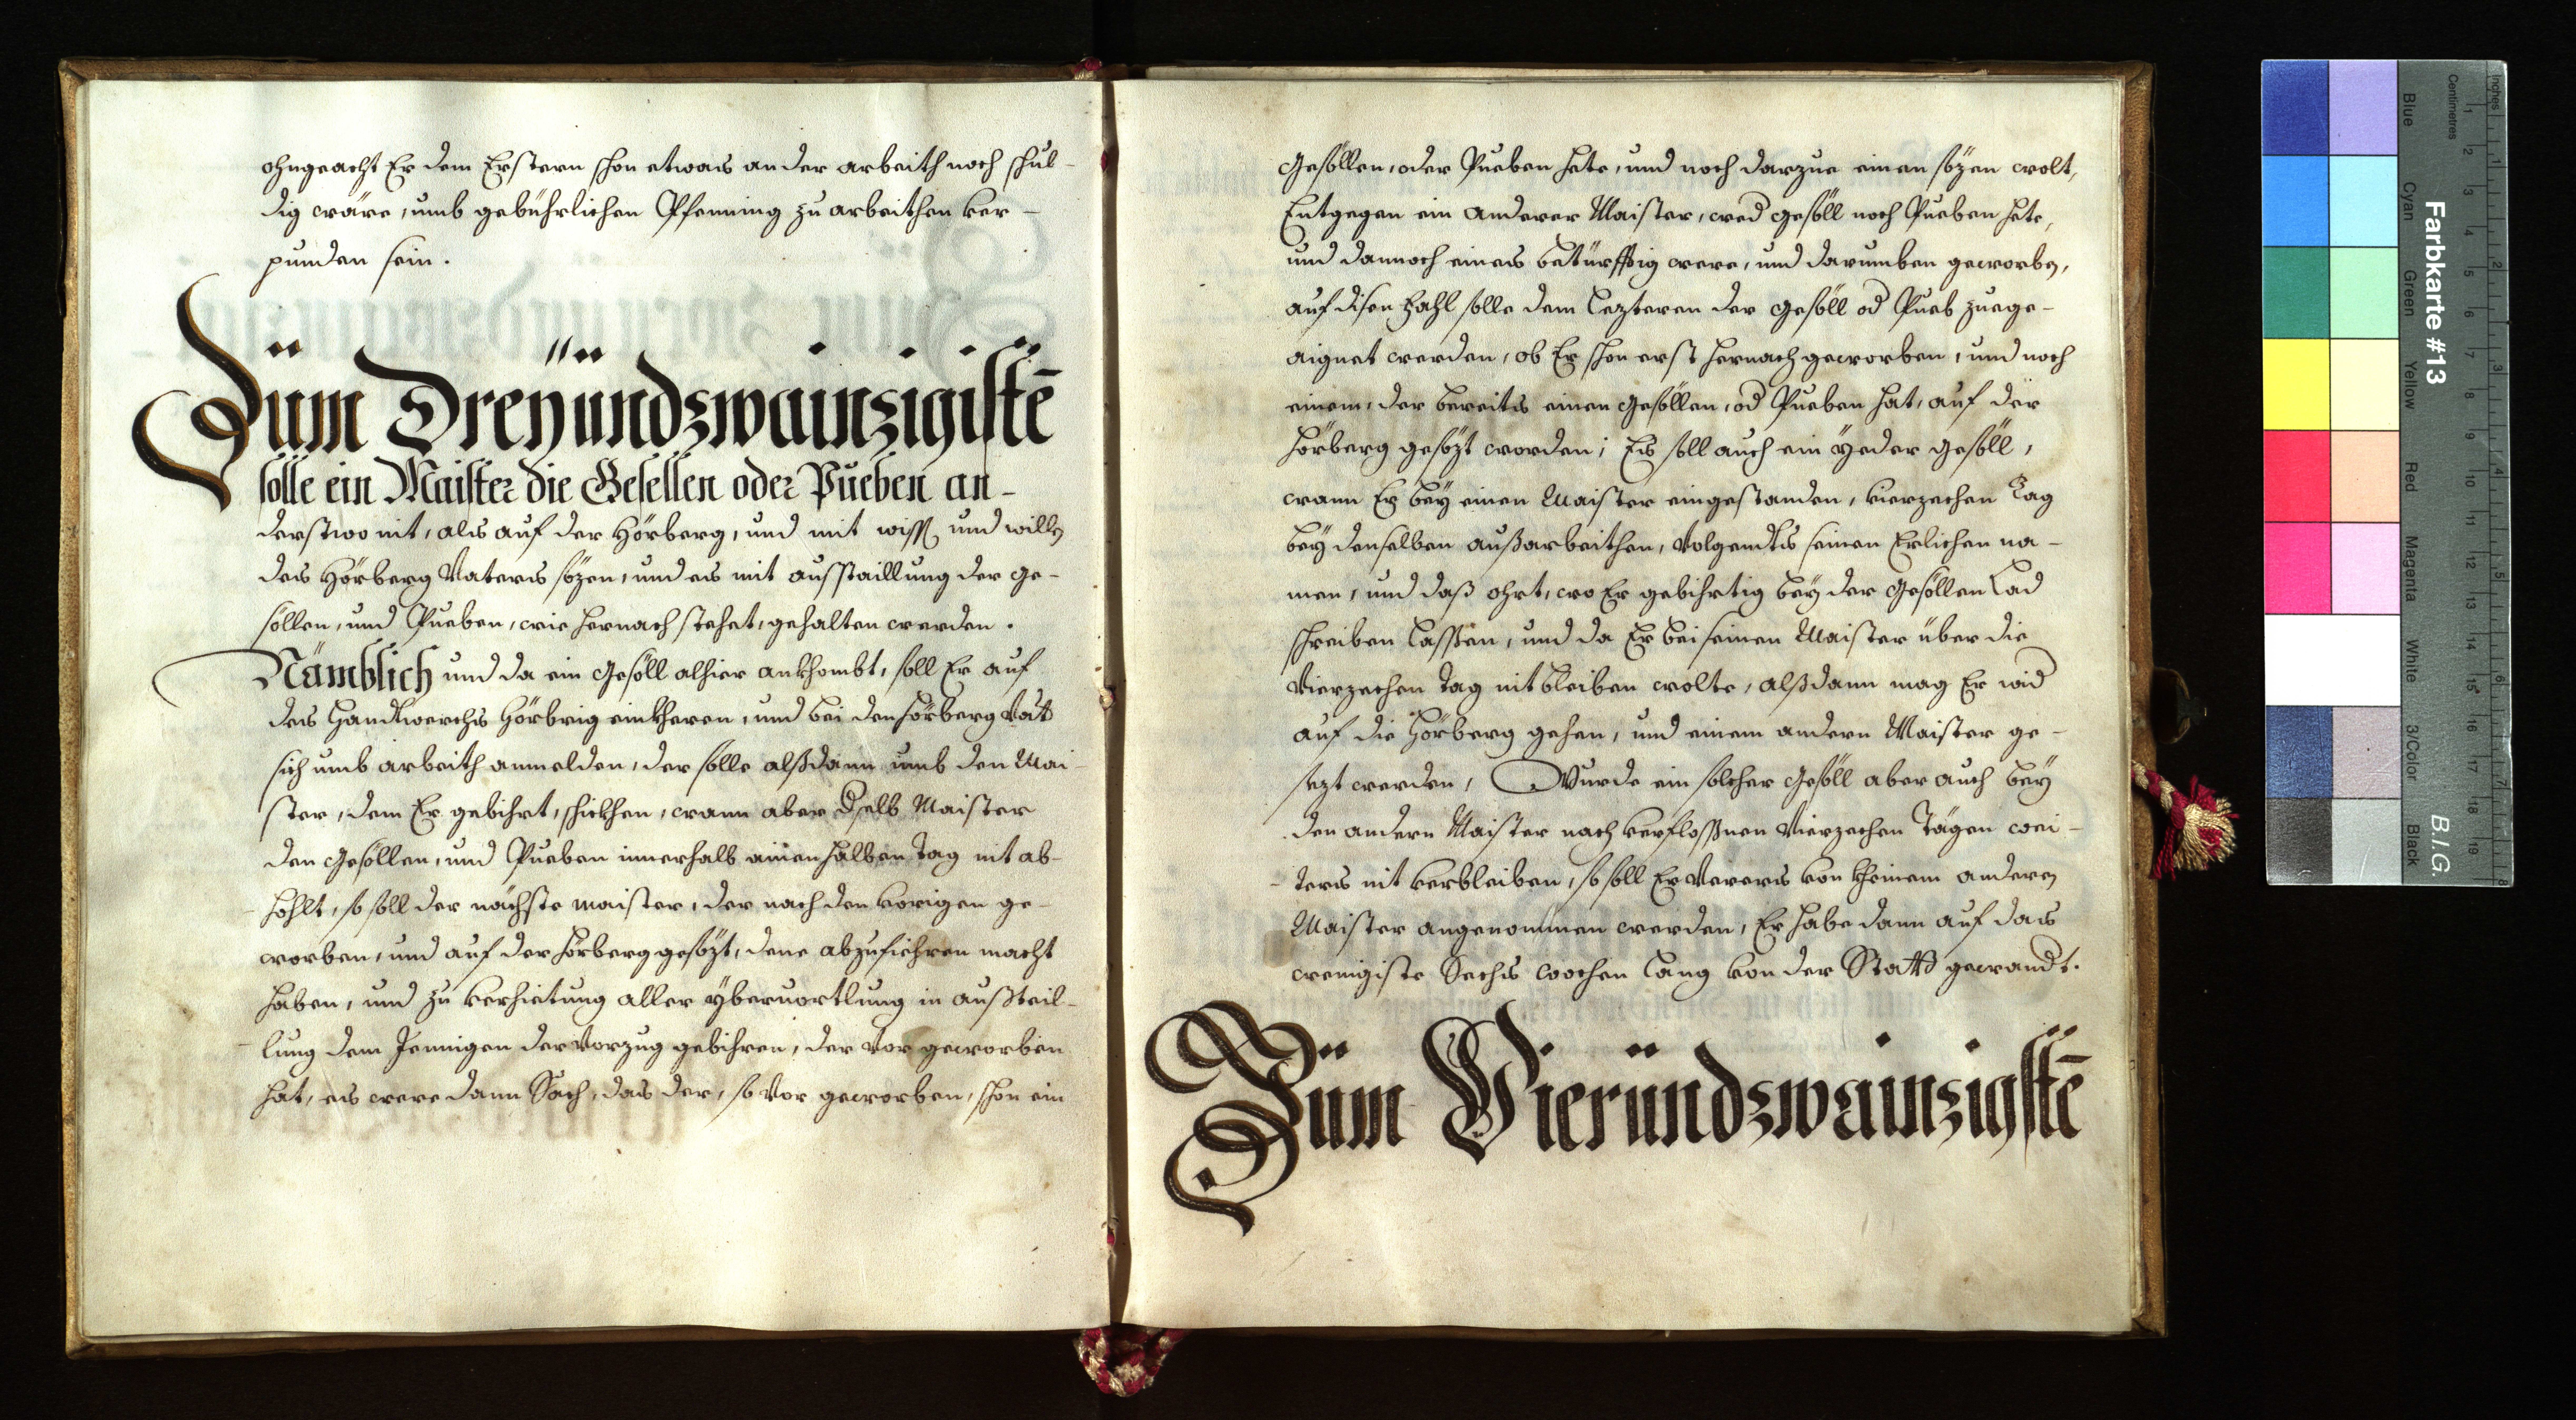 ohngeacht Er dem Erstern schon etwas an der arbeith noch schul-
dig wäre, umb gebührlichen Pfenning zu arbeithen ver-
punden sein.
Züm Dreyündzwainzigistē
solle ein Maister die Gesellen oder Pueben an-
derstwo nit, als auf der Hörberg, und mit wiss und willen
des Hörberg Vaters sözen, und es mit ausstaillung der ge-
söllen, und Pueben, wie hernach stehet, gehalten werden.
Nämblich und da ein Gesöll alhier ankhombt, soll Er auf
des Handtwerchs Hörbrig einkheren, und bei den Hörberg Vat
sich umb arbeith anmelden, der solle alßdann umb den Mai-
ster, dem Er gebihrt, schickhen, wann aber dselb Maister
den Gesöllen, und Pueben innerhalb ainen halben Tag nit ab-
hohlt, so soll der nächste maister, der nach den vorigen ge-
worben, und auf der Hörberg gesözt, dene abzufiehren macht
haben, und zu verhietung aller yberuortlung in außteil-
lung dem Jennigen der Vorzug gebihren, der Vor geworben
hat, es were dann Sach, das der, so Vor geworben, schon ein
Gesöllen, oder Pueben hete, und noch darzue einen sözen wolt,
Entgegen ein anderer Maister, wed gesöll noch Pueben hete,
und dannoch eines betürfftig were, und darumben geworben,
auf disen Fahl solle dem Lezteren der gesöll od Pueb zuege-
aignet werden, ob Er schon erst hernach geworben, und noch
einem, der bereits einen Gesöllen, od Pueben hat, auf der
Hörberg gesözt worden; Es soll auch ein yeder gesöll,
wann Er bey einen Maister eingestanden, vierzechen Tag
bey denselben außarbeithen, Volgendts seinen Erlichen na-
men, und daß ohrt, wo Er gebihrtig bey der Gesöllen Lad
schreiben Lassen, und da Er bei seinen Maister über die
Vierzechen Tag nit bleiben wolte, alßdann mag Er wid
auf die Hörberg gehen, und einem andern Maister ge-
sezt werden, Wurde ein solcher Gesöll aber auch bey
den andern Maister nach verflossnen Vierzechen Tägen wei-
ters nit verbleiben, so soll Er Verers von kheinem anderen
Maister angenommen werden, Er habe dann auf das
wenigiste Sechs wochen Lang von der Statt gewandt.
Züm Vieründzwainzigstē
Farbkarte #13
B.I.G.
Blue
Cyan
Green
Yellow
Red
Magenta
White
3/Color
Black
Centimetres
Inches
1 2 3 4 5 6 7 8 9 10 11 12 13 14 15 16 17 18 19
1 2 3 4 5 6 7 8